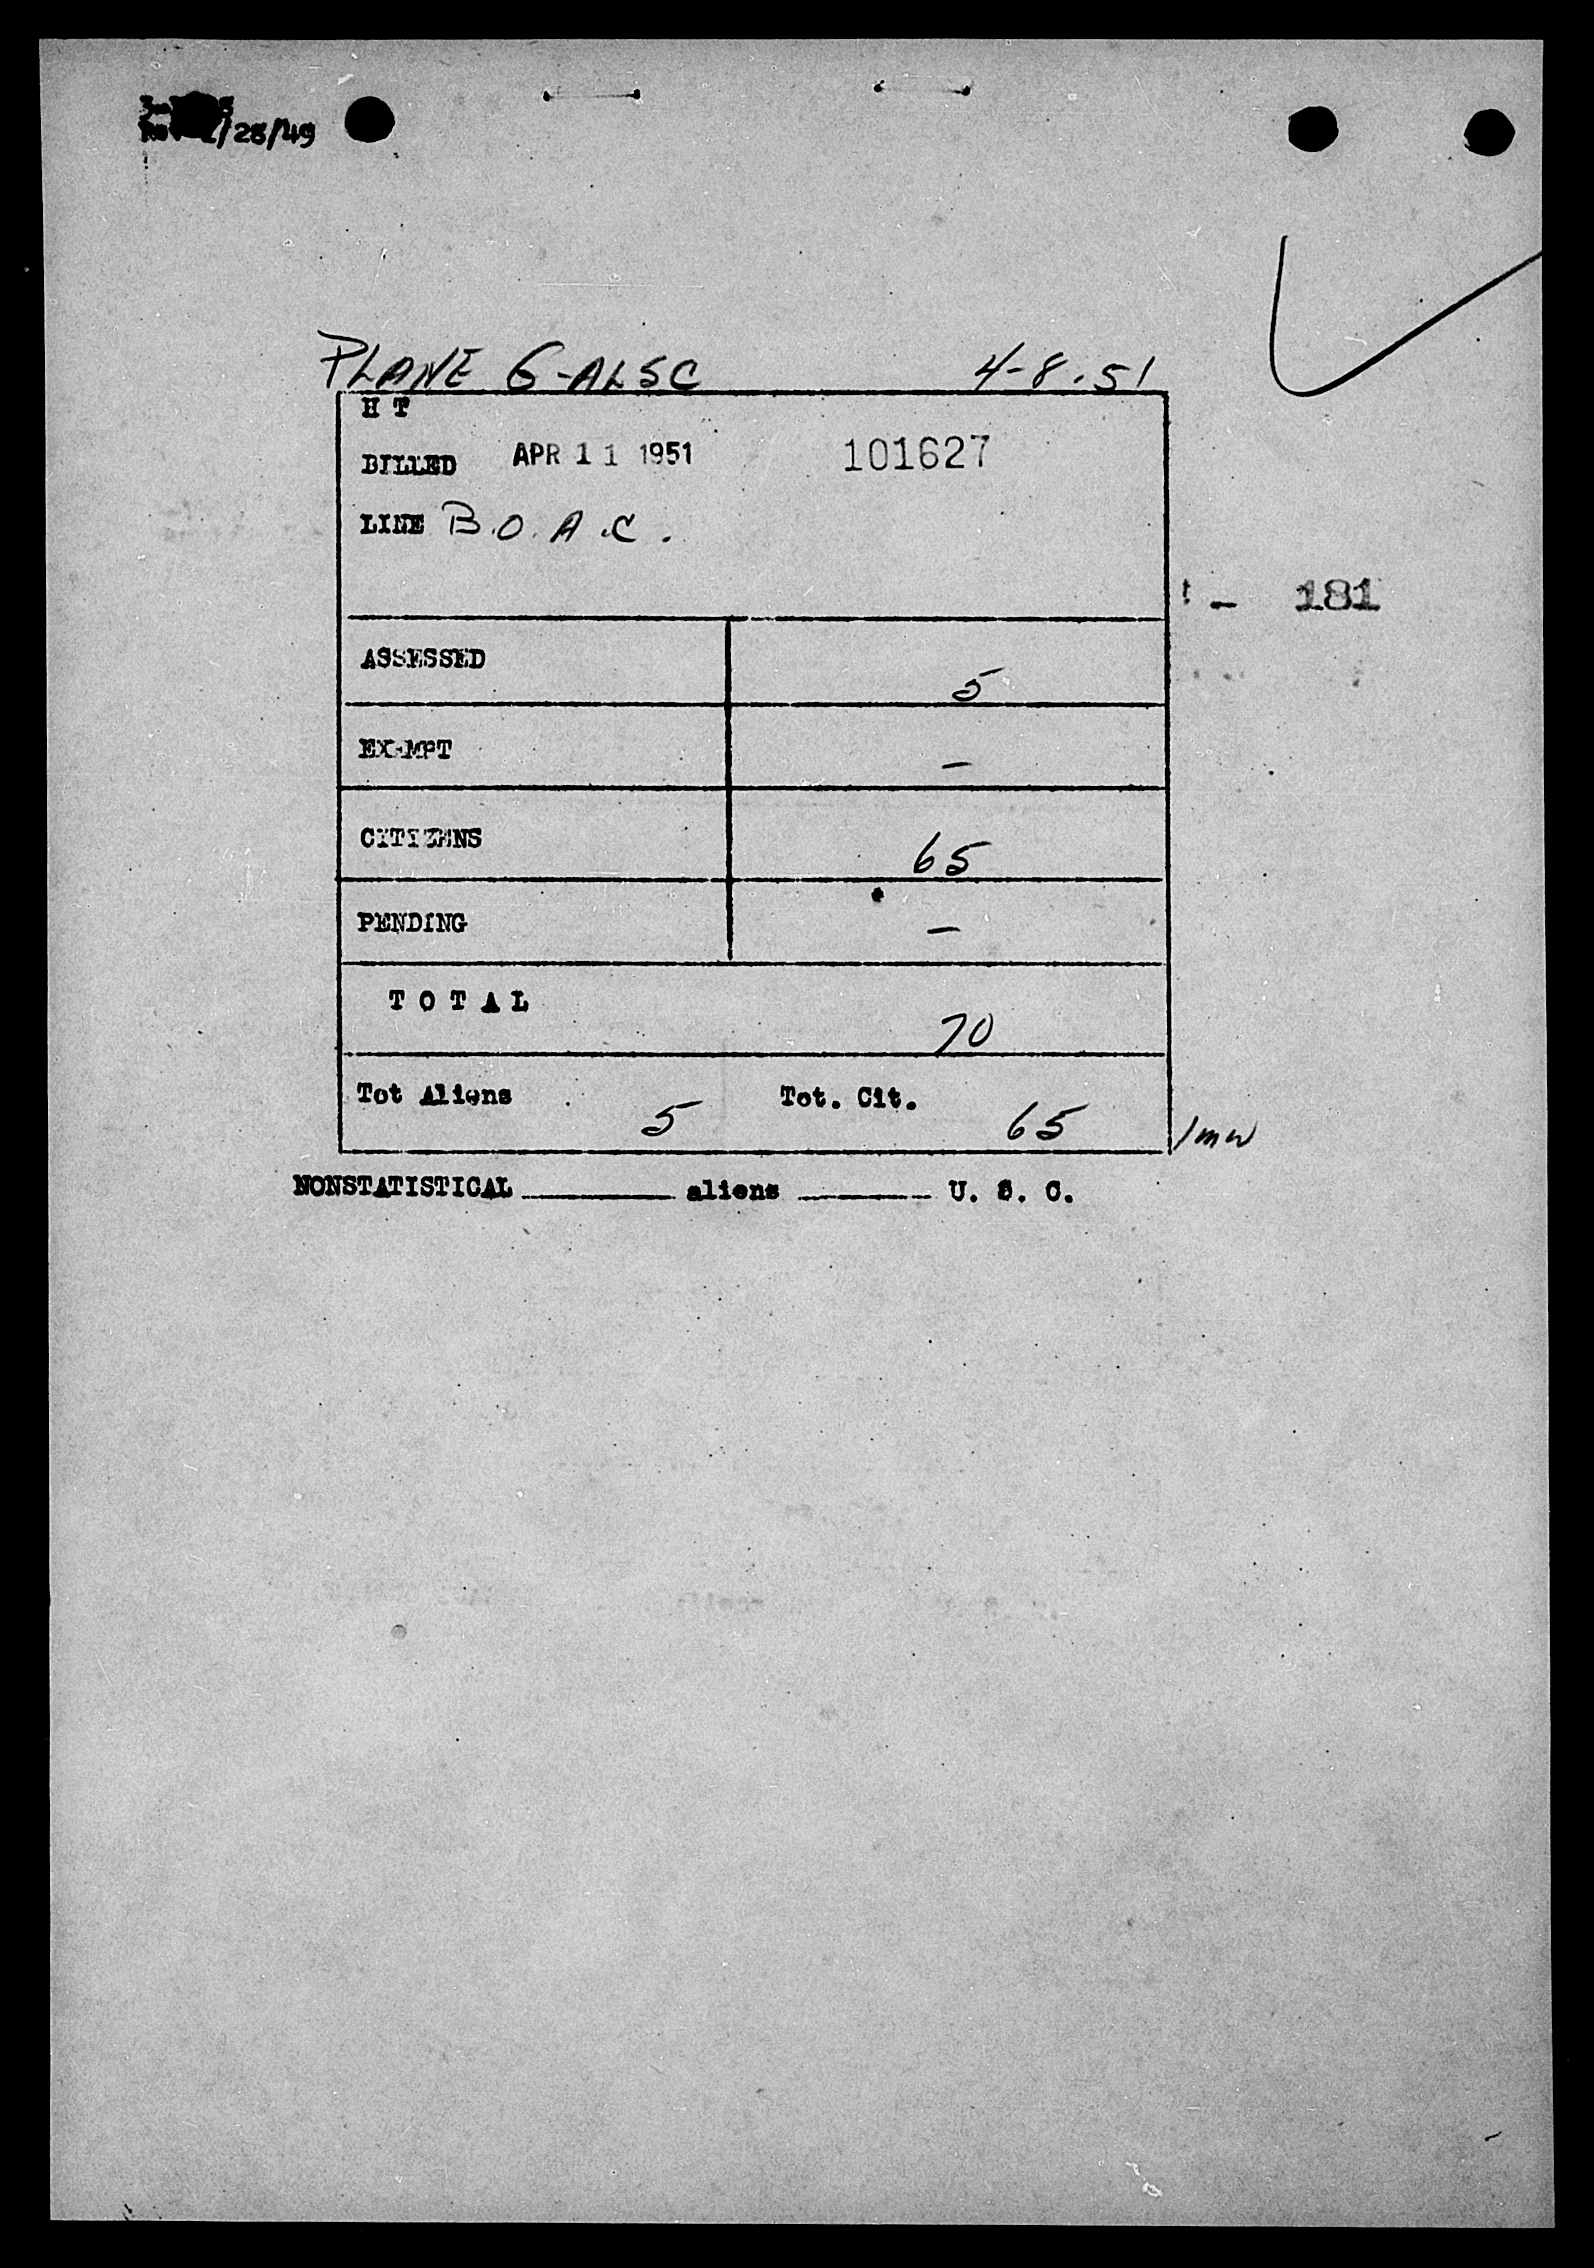 /25/49
PLANE G-ALSC 4-8.51
H T
BILLED APR 11 1951 101627
LINE B.O.A.C.
- 181
ASSESSED 5
EXEMPT -
CITIZENS 65
PENDING -
TOTAL 70
Tot Aliens 5 Tot. Cit. 65 /mw
NONSTATISTICAL ______ aliens ______ U. S. C.